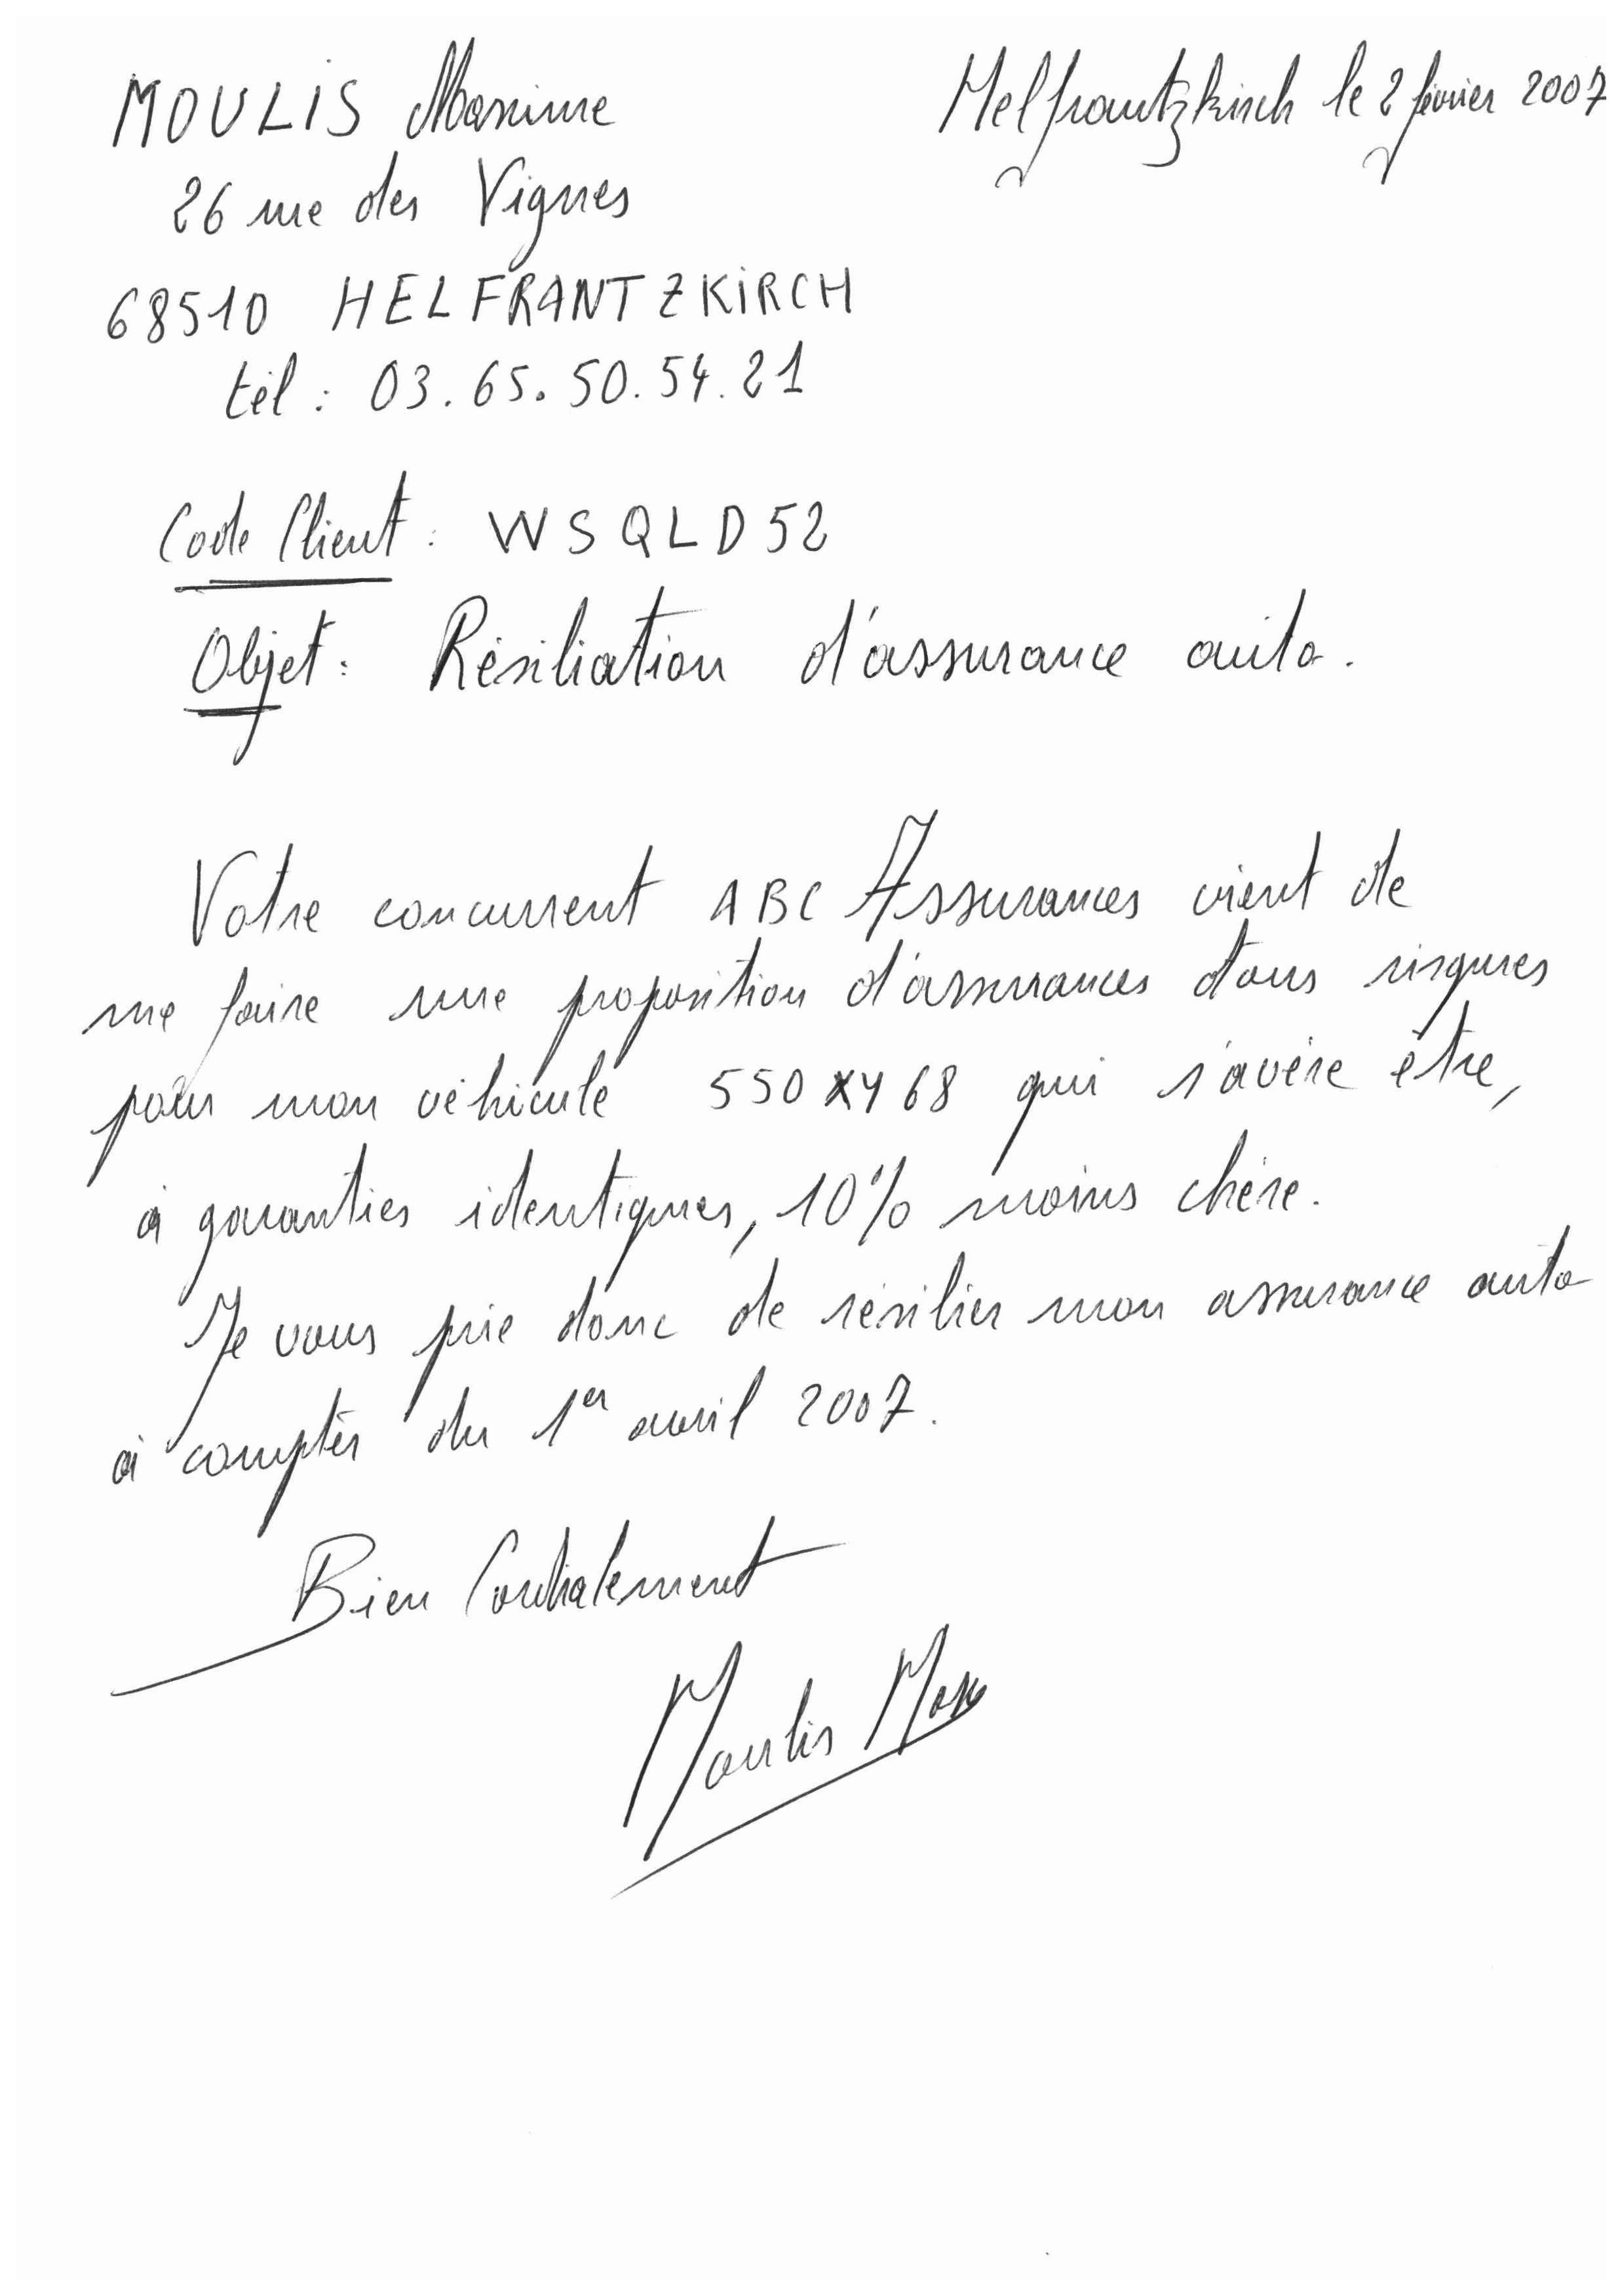 MOULIS Maxime
Helfrantzkirch le 2 février 2007
26 rue des Vignes
68510 HELFRANTZKIRCH
tél : 03.65.50.54.21
Code Client : WSQLD52
Objet : Résiliation d'assurance auto.
Votre concurrent ABC Assurances vient de
me faire une proposition d'assurances tous risques
pour mon véhicule 550XY68 qui s'avère être,
à garanties identiques, 10% moins chère.
Je vous prie donc de résilier mon assurance auto
à compter du 1er avril 2007.
Bien Cordialement
Moulis Max